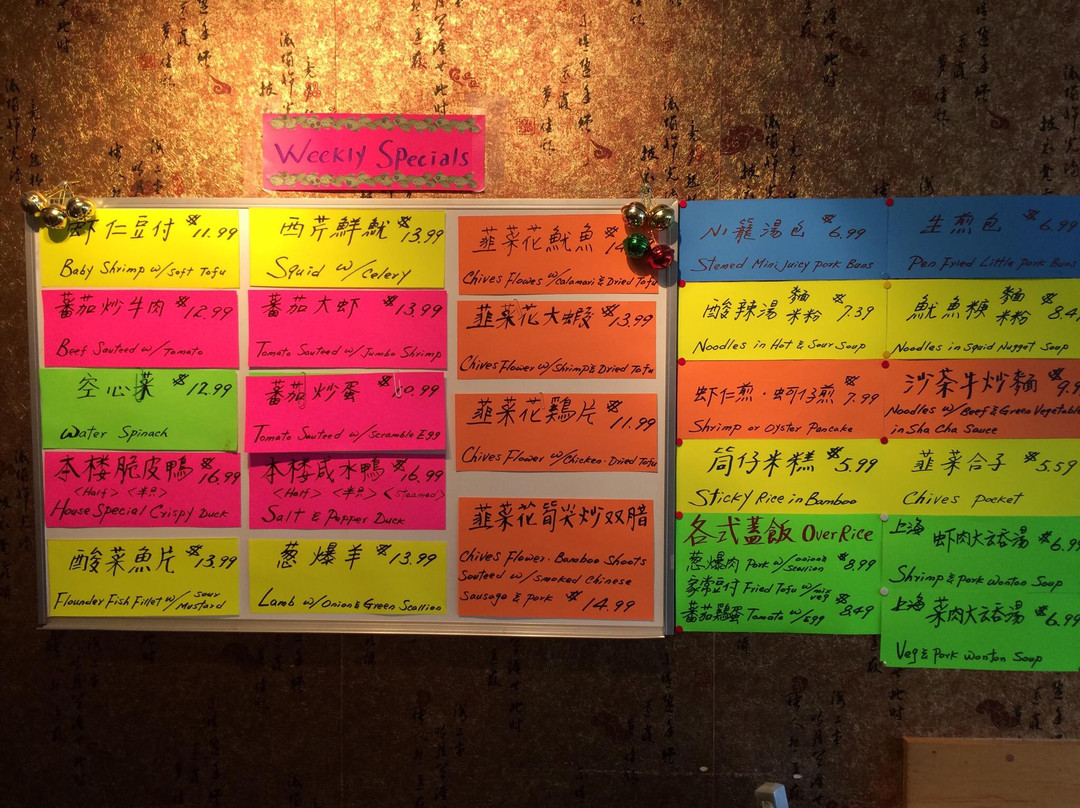 Weekly Specials
虾仁豆付 $11.99
Baby Shrimp w/Soft Tofu
蕃茄炒牛肉 $12.99
Beef Sauteed w/Tomato
空心菜 $12.99
Water Spinach
本楼脆皮鴨 $16.99
<Half> <半只>
House Special Crispy Duck
酸菜魚片 $13.99
Flounder Fish Fillet w/Sour Mustard
西芹鮮魷 $13.99
Squid w/Celery
蕃茄大虾 $13.99
Tomato Sauteed w/Jumbo Shrimp
蕃茄炒蛋 $10.99
Tomato Sauteed w/Scramble Egg
本楼咸水鴨 $16.99
<Half> <半只> <steamed>
Salt & Pepper Duck
葱爆羊 $13.99
Lamb w/Onion & Green Scallion
韮菜花魷魚
Chives Flower w/Calamari & Dried Tofu
韮菜花大蝦 $13.99
Chives Flower w/Shrimp & Dried Tofu
韮菜花鷄片 $11.99
Chives Flower w/Chicken. Dried Tofu
韮菜花筍尖炒双腊
Chives Flower. Bamboo Shoots
Sauteed w/Smoked Chinese
Sausage & Pork $14.99
小籠湯包 $6.99
Stemed Mini Juicy Pork Buns
酸辣湯麵 米粉 $7.39
Noodles in Hot & Sour Soup
虾仁煎·蚵仔煎 $7.99
Shrimp or Oyster Pancake
筒仔米糕 $5.99
Sticky Rice in Bamboo
各式蓋飯 Over Rice
葱爆肉 Pork w/onion & Scallion $8.99
家常豆付 Fried Tofu w/mix veg
蕃茄鷄蛋 Tomato w/egg $8.49
生煎包 $6.99
Pen Fried Little Pork Buns
魷魚羹麵 米粉
Noodles in Squid Nugget Soup
沙茶牛炒麵
Noodles w/Beef & Green Vegetable
in Sha Cha Sauce
韮菜合子 $5.59
Chives Pocket
上海 虾肉大云吞湯 $6.99
Shrimp & Pork Wonton Soup
上海 菜肉大云吞湯 $6.99
Veg & Pork Wonton Soup